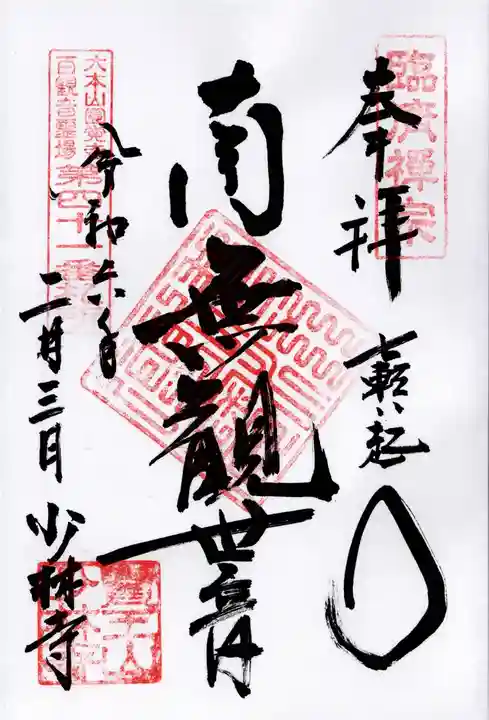 臨済禅宗
奉拝
七転八起
南無観世音
大本山圓覚寺
百観音霊場 第四十一番
令和六年
二月三日 少林寺